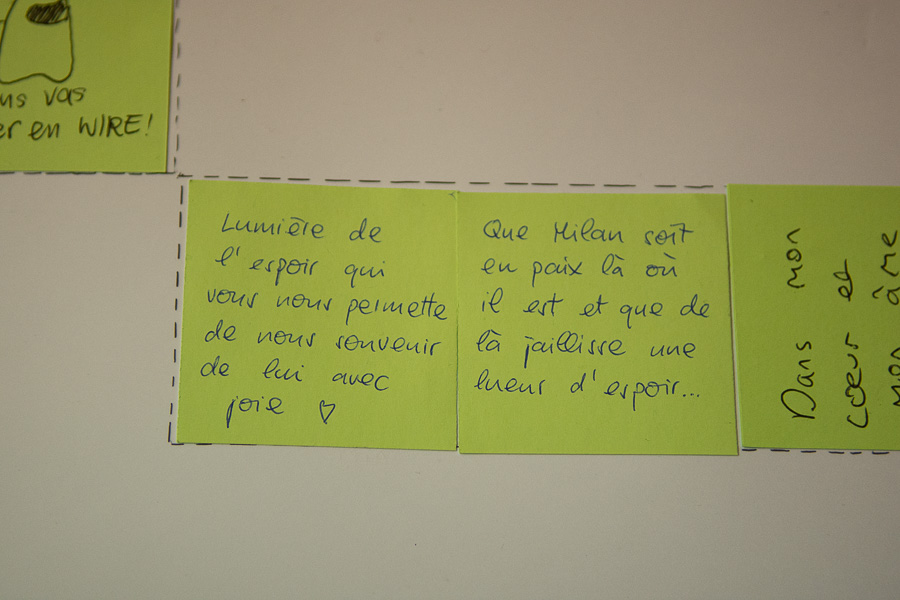 us vas
er en WIRE!
Lumière de
l'espoir qui
vous nous permette
de nous souvenir
de lui avec
joie ♡
Que Milan soit
en paix là où
il est et que de
là jaillisse une
lueur d'espoir...
Dans mon
coeur et
mon âme